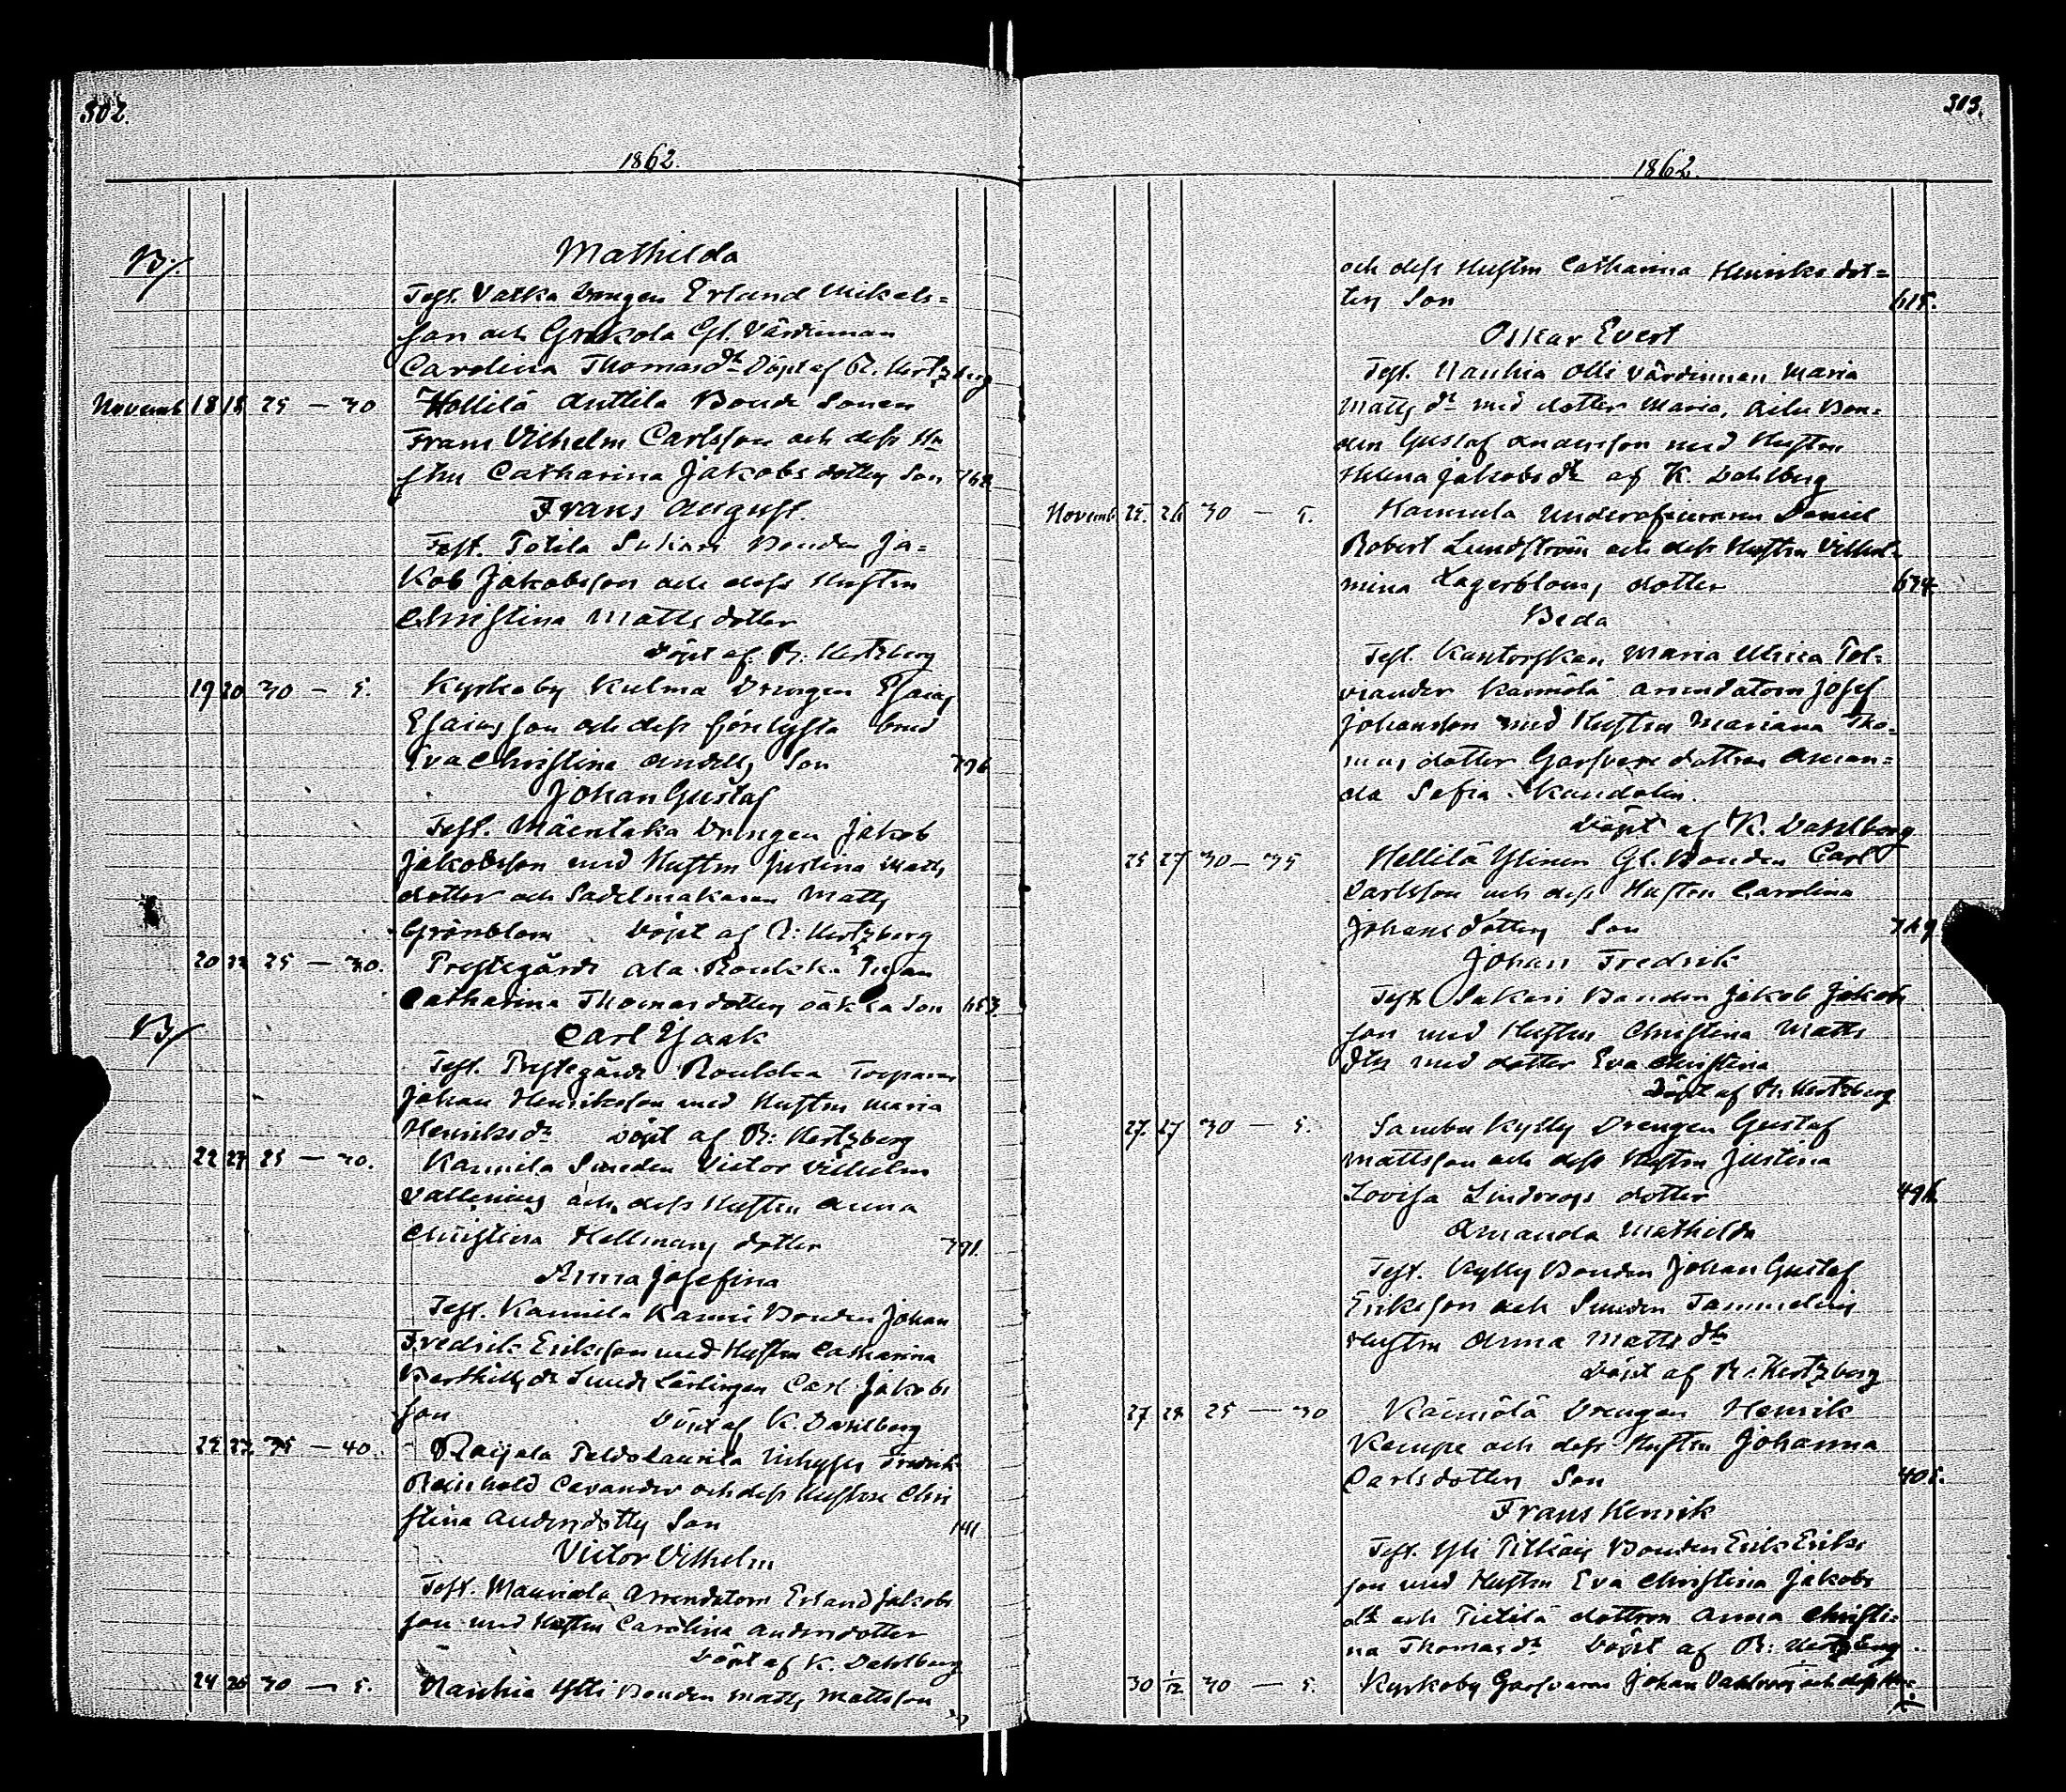 302.
1862.
B/.
Mathilda
Test. Vatka Drengen Erland Mikels=
son och Grekola Gl. Värdinnan
Carolina Thomas dr Döpt af R. Hertzberg
Novemb. 18 18 25 — 30 Hollilä Anttila Bonde Sonen
Frans Vilhelm Carlsson och dess Hu
stru Catharina Jakobsdotters Son 762.
Frans August.
Test. Potila Bonden Ja=
kob Jakobsson och dess Hustru
Christina Mattsdotter
Döpt af R. Hertzberg
19 20 30 — 5. Kyrkoby Kulma Drengen Esaias
Esaiasson och dess förelysta brud
Eva Christina Son 796
Johan Gustaf
Test. Mäentaka Drengen Jakob
Jakobsson med Hustru Justina Matts
dotter och Sadelmakaren Matts
Grönblom Döpt af R. Hertzberg
20 25 — 30. Prestegårds Ala Roukka Pigan
Catharina Thomasdotters oäkta Son 653.
B/.
Carl Isaak
Test. Prestegårds Roukka Torparen
Johan Henriksson med Hustru Maria
Henriks dr Döpt af R. Hertzberg
22 23 25 — 30. Kannila Smeden Victor Vilhelm
Vallenius och dess Hustru Anna
Christina Hellmans dotter 791.
Anna Josefina
Test. Kannila Kanni Bonden Johan
Fredrik Eriksson med Hustru Catharina
Berthils dr Smeds Lärlingen Carl Jakobs
son Döpt af K. Dahlberg
22 23 35 — 40. Raijala Peldolaurila Inhyses Fredrik
Reinhold Cavander och dess Hustru Chri
stina Andersdotters Son 141
Victor Vilhelm
Test. Mauriala Arrendatorn Erland Jakobs
son med Hustru Carolina Andersdotter
Döpt af K. Dahlberg
24 26 30 — 5. Nanhia Olli Bonden Matts Mattsson
303.
1862.
och dess Hustru Catharina Henriksdot=
ters Son 615.
Oskar Evert
Test. Nanhia Olli Värdinnan Maria
Matts dr med dotter Maria, Aila Bon=
den Gustaf Andersson med Hustru
Helena Jakobs dr af K. Dahlberg
Novemb. 25. 26 30 — 5. Kannila Underofficeraren Daniel
Robert Lundström och dess Hustru Vilhel=
mina Lagerbloms dotter 674
Beda
Test. Kantorskan Maria Ulrica Pol=
viander Karmölä Arrendatorn Josef
Johansson med Hustru Mariana Tho=
mas dotter Garfvare dottren Aman=
da Sofia Kandolin.
Döpt af K. Dahlberg
25 27 30 — 35 Hellilä Ylinen Gl. Bonden Carl
Carlsson och dess Hustru Carolina
Johansdotters Son 769
Johan Fredrik
Test. Sukari Bonden Jakob Jakobs
son med Hustru Christina Matts
dtr med dotter Eva Christina
Döpt af R. Hertzberg
27. 27 30 — 5. Sambu Kylly Drengen Gustaf
Mattsson och dess Hustru Justina
Lovisa Lindroos dotter 496
Amanda Mathilda
Test. Kylly Bonden Johan Gustaf
Eriksson och Smeden Tammelins
Hustru Anna Matts dr
Döpt af R. Hertzberg
27 28 25 — 30 Käimölä Drengen Henrik
Kempe och dess Hustru Johanna
Carlsdotters Son 405.
Frans Henrik
Test. Yli Pitkäis Bonden Erik Eriks
son med Hustru Eva Christina Jakobs
dr och Tietilä dottren Anna Christi=
na Thomas dr Döpt af R. Hertzberg.
30 1/12 30 — 5. Kyrkoby Garfvaren Johan Dahlroos och dess Hu=